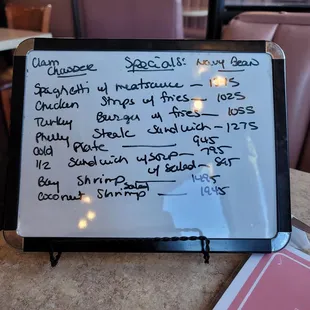 Clam Chowder Specials: Navy Bean
Spaghetti w/ meatsauce —
Chicken Strips w/ fries — 1025
Turkey Burger w/ fries — 1055
Philly Steak Sandwich — 1275
Cold Plate — 945
1/2 Sandwich w/ soup — 795
w/ salad — 845
Bay Shrimp Salad — 1495
Coconut Shrimp — 1845